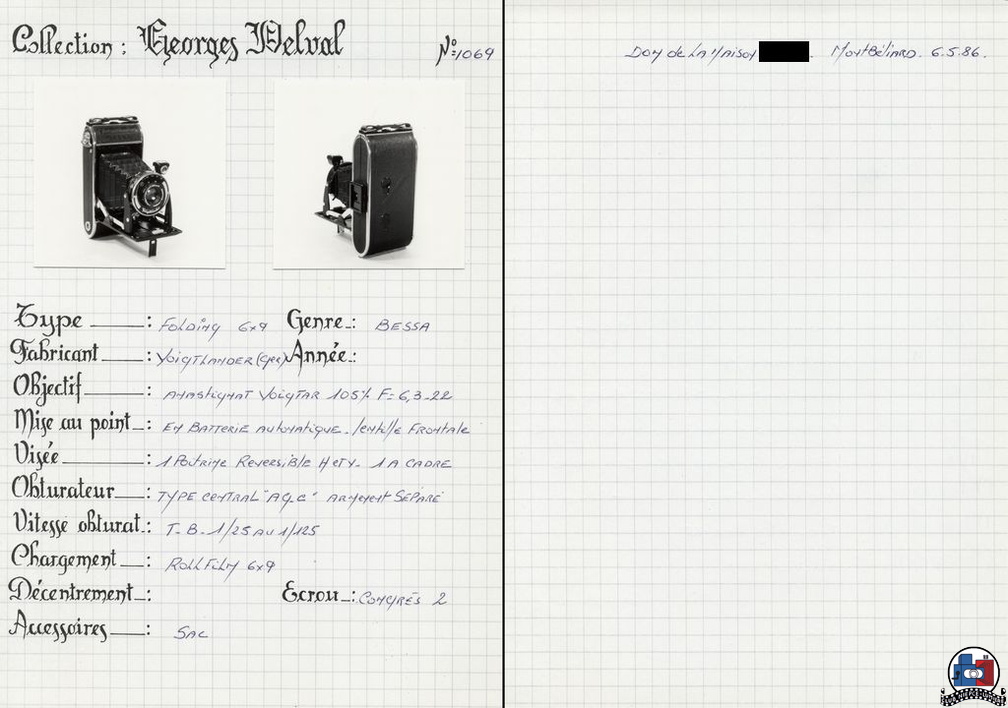 Collection : Georges Delval
N°: 1069
Type : Folding 6x9 Genre : BESSA
Fabricant : VOIGTLANDER (Ger) Année :
Objectif : Anastigmat VOIGTAR 105% F=6,3-22
Mise au point : EN BATTERIE AUTOMATIQUE. lentille FRONTALE
Visée : 1 Poitrine REVERSIBLE H et V. 1 A CADRE
Obturateur : TYPE CENTRAL "A G C" ARMEMENT SÉPARÉ
Vitesse obturat. : T. B. 1/25 AU 1/125
Chargement : ROLL FILM 6x9
Décentrement : Ecrou : CONGRÈS 2
Accessoires : SAC
DON de LA MAISON . MONTBÉLIARD. 6.5.86.